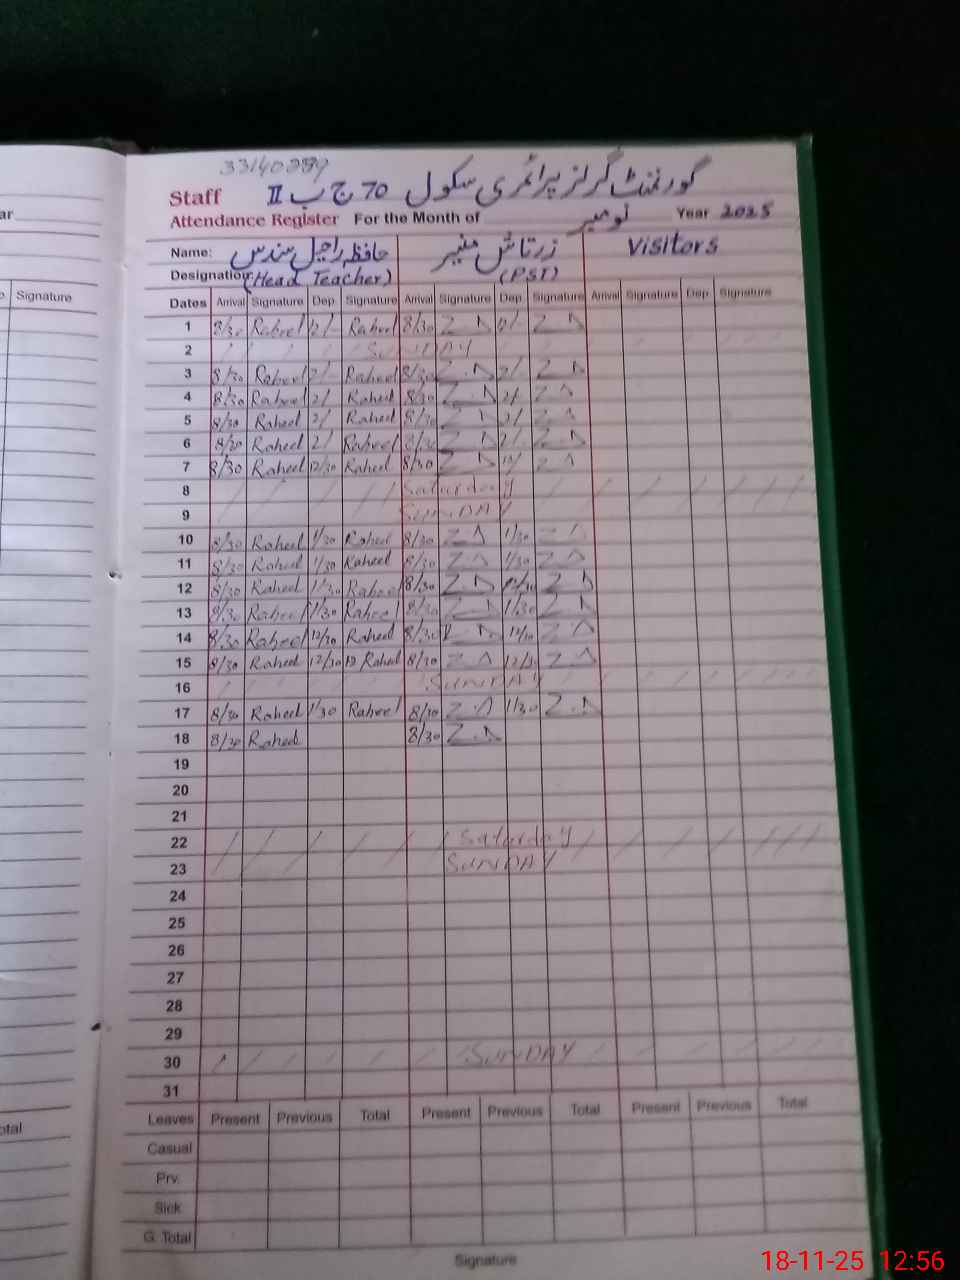 گورنمنٹ گرلز پرائمری سکول 70 ج ب II
Staff
Attendance Register For the Month of نومبر Year 2025
Name: حافظہ راحیل زرتاش منیر Visitors
Designation: (Head Teacher) (PST)
Dates Arrival Signature Dep. Signature Arrival Signature Dep. Signature Arrival Signature Dep. Signature
1 8/30 Raheel 2/- Raheel 8/30 Z.N 2/- Z N
2 SUNDAY
3 8/30 Raheel 2/- Raheel 8/30 Z.N 2/ Z N
4 8/30 Raheel 2/ Raheel 8/30 Z.N 2/ Z N
5 8/30 Raheel 2/ Raheel 8/30 Z N 2/ Z N
6 8/30 Raheel 2/ Raheel 8/30 Z N 2/ Z.N
7 8/30 Raheel 12/30 Raheel 8/30 Z N 12/ Z N
8 Saturday
9 SUNDAY
10 8/30 Raheel 1/30 Raheel 8/30 Z N 1/30 Z N
11 8/30 Raheel 1/30 Raheel 8/30 Z N 1/30 Z N
12 8/30 Raheel 1/30 Raheel 8/30 Z.N Z N
13 8/30 Raheel 1/30 Raheel 8/30 Z N 1/30 Z N
14 8/30 Raheel 12/30 Raheel 8/30 Z N 12/30 Z N
15 8/30 Raheel 12/30 Raheel 8/30 Z N 12/30 Z N
16 SUNDAY
17 8/30 Raheel 1/30 Raheel 8/30 Z N 1/30 Z.N
18 8/30 Raheel 8/30 Z.N
19
20
21
22 Saturday
23 SUNDAY
24
25
26
27
28
29
30 SUNDAY
31
Leaves Present Previous Total Present Previous Total Present Previous Total
Casual
Prv.
Sick
G. Total
Signature
Signature
18-11-25 12:56